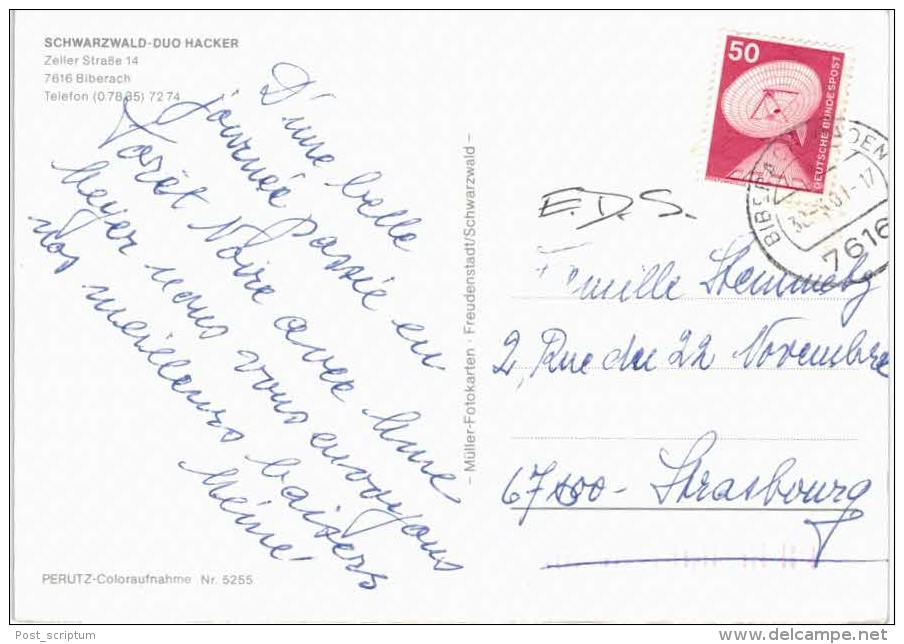 SCHWARZWALD-DUO HACKER
Zeller Straße 14
7616 Biberach
Telefon (0 78 35) 72 74
D'une belle
journée passée en
Forêt Noire avec Mme
Meyer nous vous envoyons
nos meilleurs baisers
PERUTZ-Coloraufnahme Nr. 5255
– Müller-Fotokarten · Freudenstadt/Schwarzwald –
50
DEUTSCHE BUNDESPOST
7616
E.D.S.
Famille Stemmetz
2, Rue du 22 Novembre
67000 - Strasbourg
Post_scriptum
www.delcampe.net